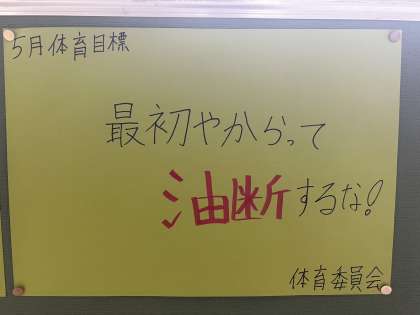 5月体育目標
最初やからって
油断するな!
体育委員会